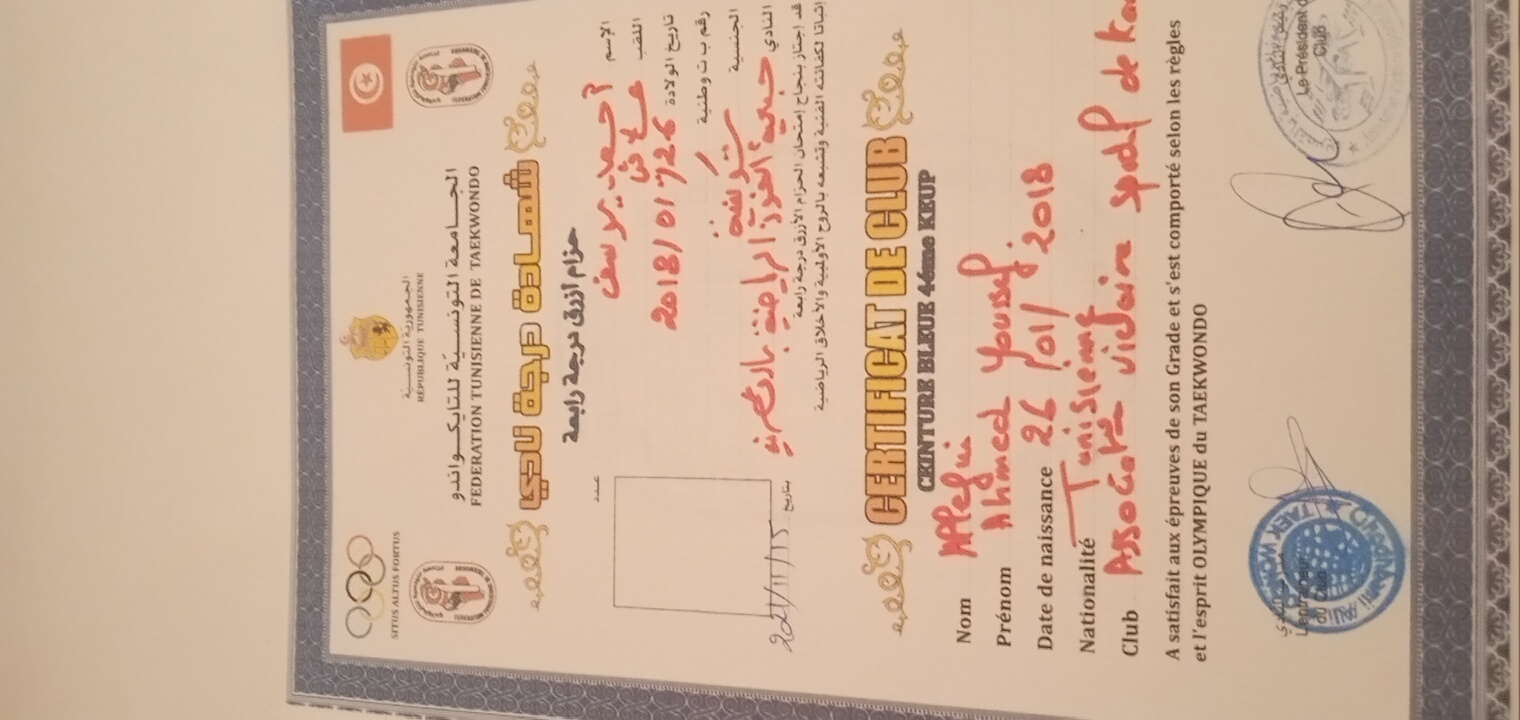 الجمهورية التونسية
REPUBLIQUE TUNISIENNE
SITUS ALTUS FORTUS
الجامعة التونسية للتايكواندو
FEDERATION TUNISIENNE DE TAEKWONDO
شهادة درجة نادي
حزام أزرق درجة رابعة
عدد
الإسم أحمد يوسف
اللقب
تاريخ الولادة 2018/01/26
رقم ب ت وطنية
الجنسية تونسية
النادي جمعية الرياضية
قد إجتاز بنجاح إمتحان الحزام الأزرق درجة رابعة
إثباتا لكفائته الفنية وتشبعه بالروح الأولمبية والأخلاق الرياضية
بتاريخ
CERTIFICAT DE CLUB
CEINTURE BLEUE 4éme KEUP
Nom
Prénom Ahmed Youssef
Date de naissance 26/01/2018
Nationalité Tunisienne
Club
A satisfait aux épreuves de son Grade et s'est comporté selon les règles
et l'esprit OLYMPIQUE du TAEKWONDO
L'entraineur
du Club
Le Président d
Club